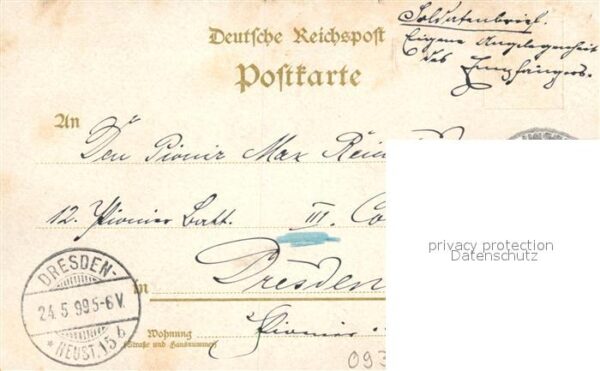 Soldatenbrief.
Eigene Angelegenheit
des Empfängers.
Deutsche Reichspost
Postkarte
An
Den Pionir Max
12. Pionier Batt. III. Co
in Dresden
Wohnung
(Straße und Hausnummer)
Pionier
DRESDEN-
24.5.99 5-6V.
* NEUST. 15 b
privacy protection
Datenschutz
093